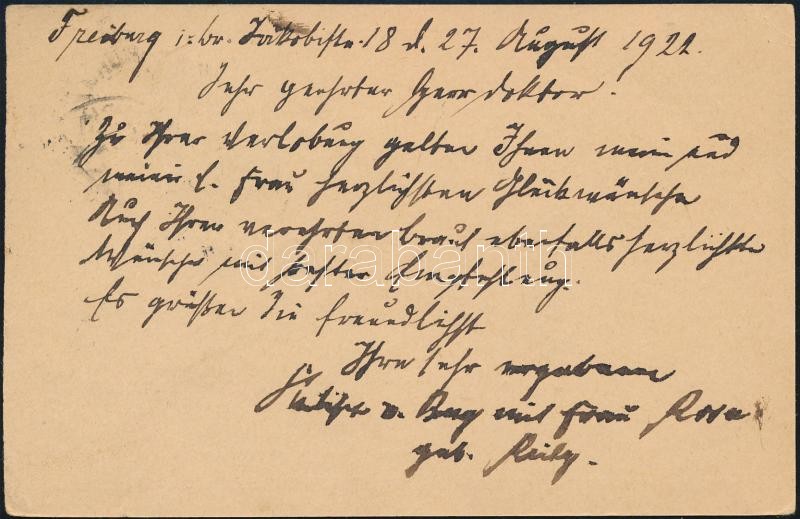 Freiburg i. Br. Jakobistr. 18 d. 27. August 1922.
Sehr geehrter Herr Doktor.
Zu Ihrer Verlobung gelten Ihnen mein und
meiner l. Frau herzlichsten Glückwünsche
Auch Ihrer verehrten Braut ebenfalls herzlichste
Wünsche mit bester Empfehlung.
Es grüßen Sie freundlichst
Ihre sehr ergebenen
v. mit Frau Rosa
geb.
darabanth